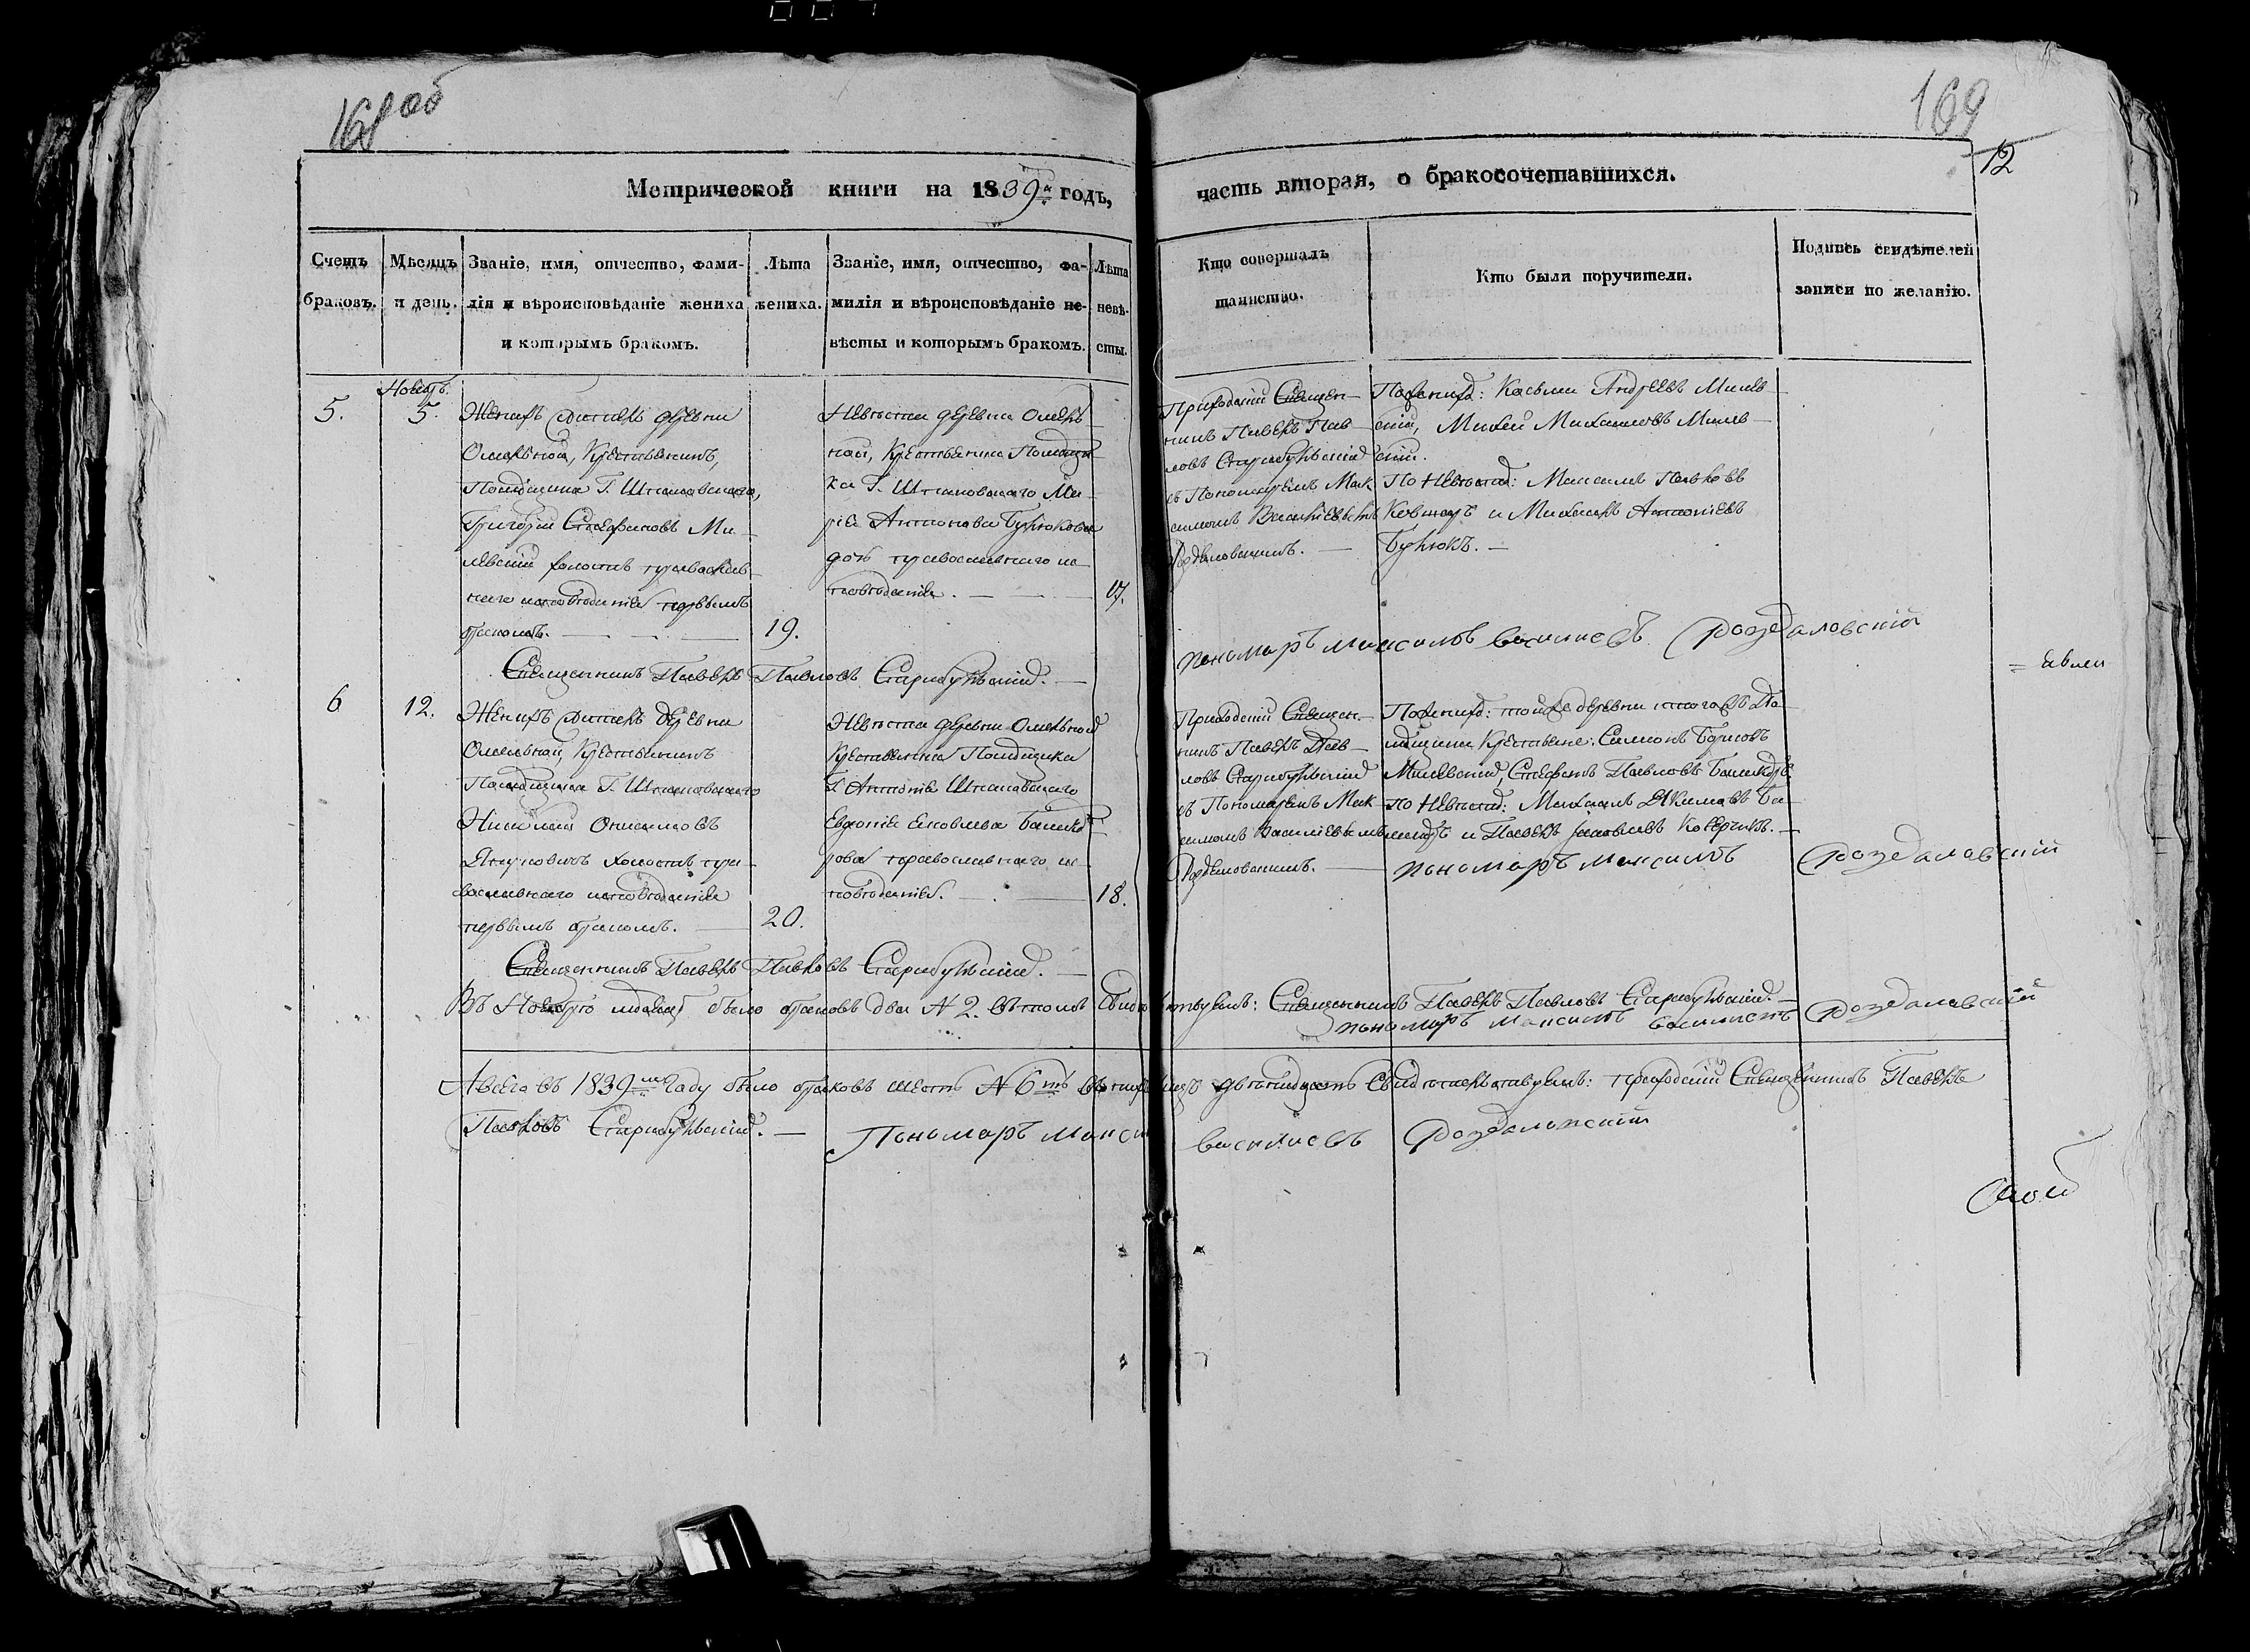 168 об
169
12
Метрической книги на 1839й годъ,
часть вторая, о бракосочетавшихся.
Счетъ браковъ.
Мѣсяцъ и день.
Званіе, имя, отчество, фами-
лія и вѣроисповѣданіе жениха
и которымъ бракомъ.
Лѣта
жениха.
Званіе, имя, отчество, фа-
милія и вѣроисповѣданіе не-
вѣсты и которымъ бракомъ.
Лѣта
невѣ-
сты.
Кто совершалъ
таинство.
Кто были поручители.
Подпись свидѣтелей
записи по желанію.
5.
Ноября
5.
Женихъ житель деревни
Омельной, Крестьянинъ,
Помѣщика Г. Шпаковскаго,
Григорій Стефановъ Ми-
левскій холостъ православ-
наго исповѣданія первымъ
бракомъ.
19.
Невѣста деревни Омель-
ной, Крестьянка Помѣщи
ка Г. Шпаковскаго Ма-
рія Антонова Бурюкова
дочь православнаго ис-
повѣданія.
17.
Приходскій Священ-
никъ Павелъ Пав-
ловъ Старобунскій
съ Пономаремъ Мак
симомъ Васильевымъ
Роздяловскимъ.
По женихѣ: Косьма Андреевъ Милев-
скій, Михей Михайловъ Милев-
скій.
По невѣстѣ: Максимъ Павловъ
Ковшаръ и Михаилъ Антоніевъ
Бурюкъ.
Пономаръ Максимъ Василиевъ Роздаловскій
Священникъ Павелъ Павловъ Старобунскій.
6
12.
Женихъ житель деревни
Омельной, Крестьянинъ
Помѣщика Г. Шпаковскаго
Николай
Янукович холостъ пра-
вославнаго исповѣданія
первымъ бракомъ.
20.
Невѣста деревни Омельной
Крестьянка Помѣщика
Г. Антонія Шпаковскаго
Евдокія Яковлева Башко-
рова православнаго ис-
повѣданія.
18.
Приходскій Священ-
никъ Павелъ Пав-
ловъ Старобунскій
съ Пономаремъ Мак
симомъ Василіевымъ
Роздяловскимъ.
По женихѣ: той же деревни и того жъ По-
мѣщика Крестьяне: Симонъ Борисовъ
Милевскій, Стефанъ Павловъ
По невѣстѣ: Михаилъ Якимовъ
и Павелъ Яковлевъ Коверчикъ.
Пономаръ Максимъ Роздаловскій
Священникъ Павелъ Павловъ Старобунскій.
Въ Ноябрѣ мѣсяцѣ было браковъ два N 2. въ томъ Свидѣтельствуемъ: Священникъ Павелъ Павловъ Старобунскій.
Пономаръ Максимъ Василиевъ Роздаловскій
А всего въ 1839мъ Году было браковъ шесть N 6ть въ томъ Свидѣтельствуемъ: приходскій Священникъ Павелъ
Павловъ Старобунскій. Пономаръ Максимъ Василиевъ Роздаловскій